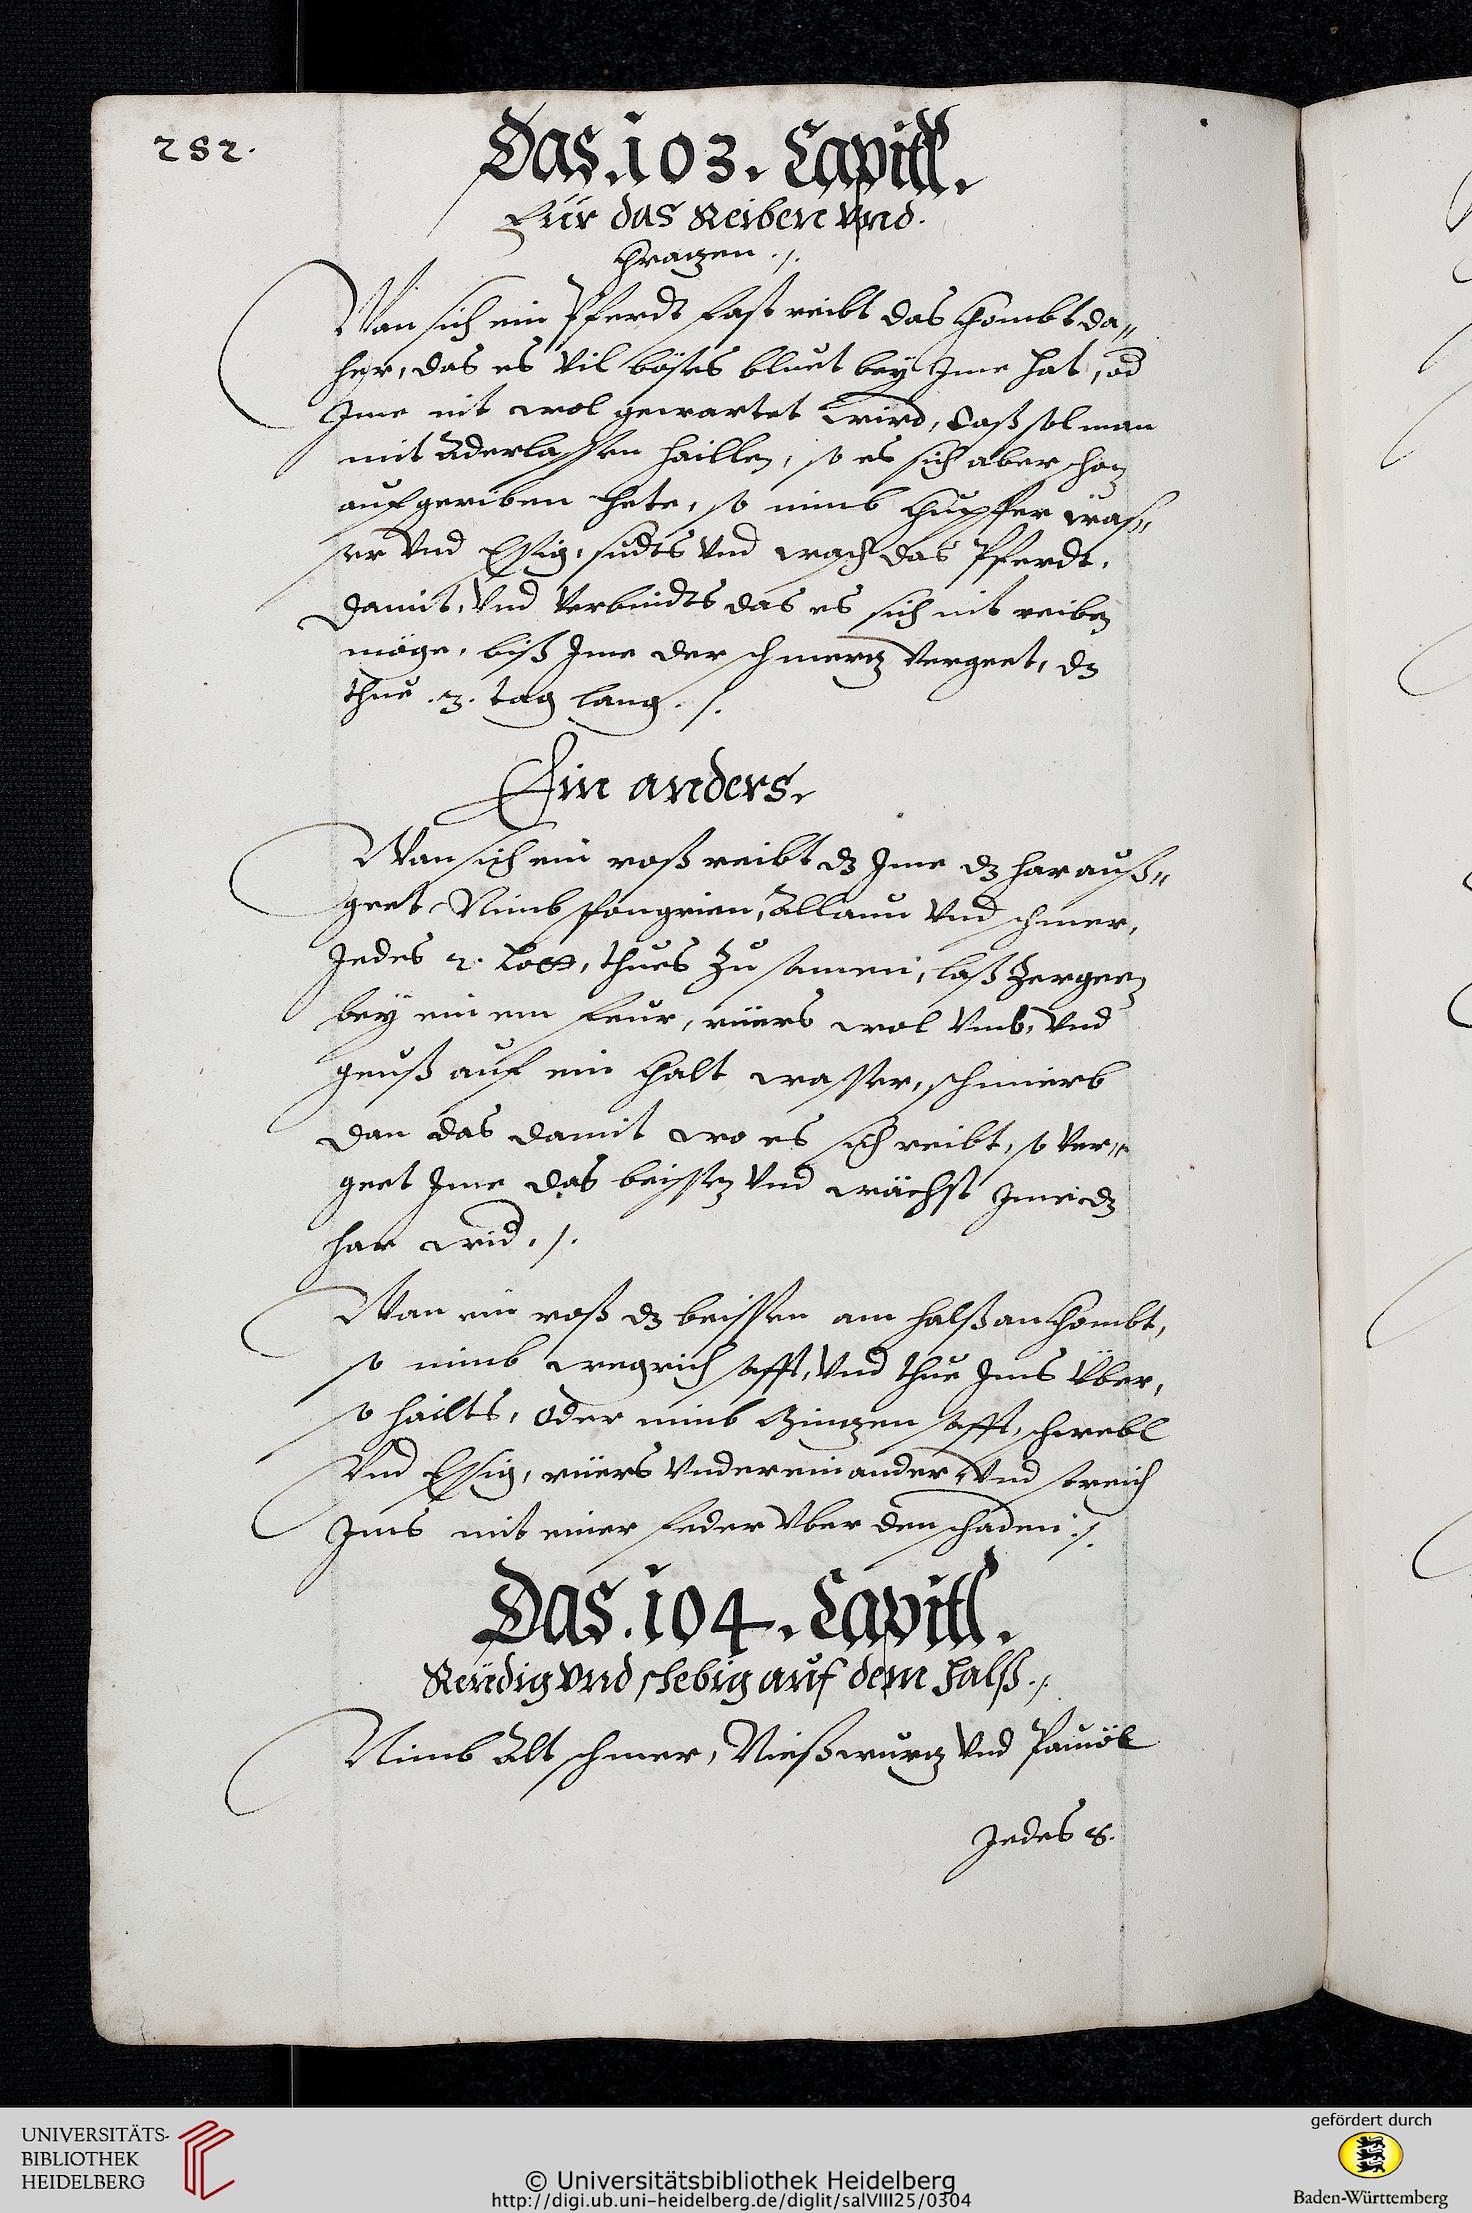 252.
Das .103. Capitl.
Für das Reiben vnd.
Chrazen ./.
Wan sich ein Pferdt fast reibt das Chombt da„
her, das es vil böses bluet bey Ime hat, od
Ime nit wol gewartet wird, das sol man
mit Aderlassen haillen, so es sich aber schon
aufgeriben hete, so nimb Chupffer was„
ser vnd Essig, südts vnd wasch das Pferdt,
damit, vnd verbindts das es sich nit reiben
möge, biß Ime der schmerz vergeet, dz
thue .3. tag lang ./.
Ein anders.
Wan sich ein roß reibt dz Ime dz har auß„
geet Nimb spongrien, Allaun vnd schmer,
Jedes 2. Lott, thues Zu samen, laß Zergeen
bey einem feur, rüers wol vmb, vnd
geuß auf ein Chalt wasser, schmierb
dan das damit wo es sich reibt, so ver„
geet Ime das beissen vnd wächst Ime dz
har wid ./.
Wan ein roß dz beissen am halß an Chombt,
so nimb wegrich safft, vnd thue Ims Über,
so hailts, oder nimb safft, schwebl
vnd Essig, rüers vndereinander, vnd streich
Ims mit einer feder vber den schaden ./.
Das .104. Capitl.
Reüdig vnd schebig auf dem halß ./.
Nimb Alt schmer, Nießwurz vnd Pamöl
Jedes 8.
UNIVERSITÄTS-
BIBLIOTHEK
HEIDELBERG
© Universitätsbibliothek Heidelberg
http://digi.ub.uni-heidelberg.de/diglit/salVIII25/0304
gefördert durch
Baden-Württemberg